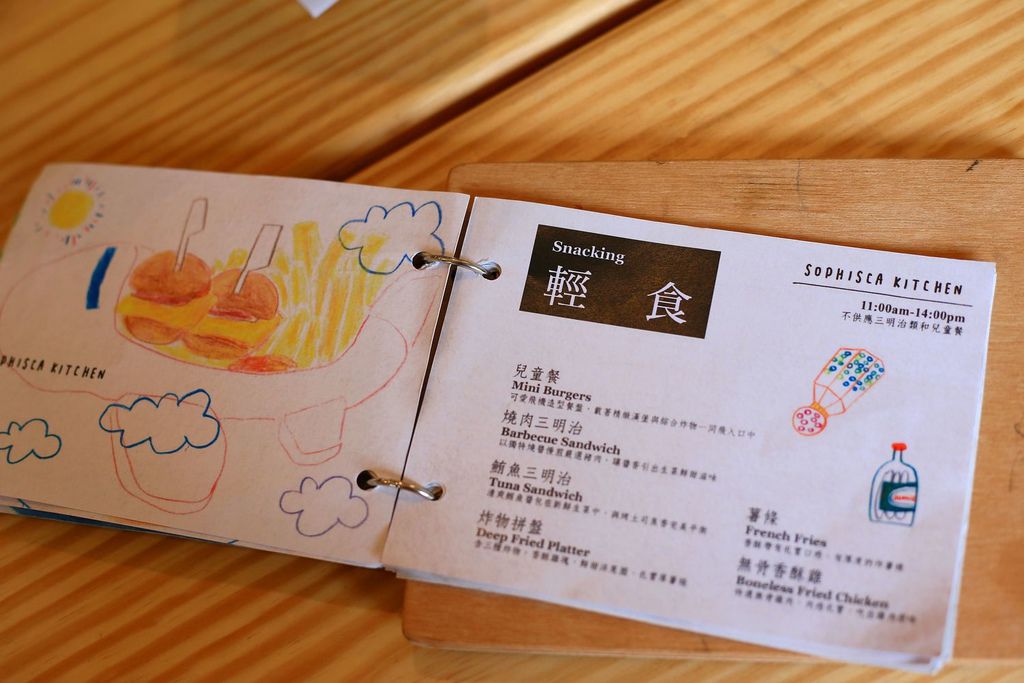 PHISCA KITCHEN
Snacking
輕食
SOPHISCA KITCHEN
11:00am-14:00pm
不供應三明治類和兒童餐
兒童餐
Mini Burgers
可愛飛機造型餐盤，載著精緻漢堡與綜合炸物一同飛入口中
燒肉三明治
Barbecue Sandwich
以獨特燒醬慢煎嚴選豬肉，讓醬香引出生菜鮮甜滋味
鮪魚三明治
Tuna Sandwich
清爽鮪魚醬包在新鮮生菜中，與烤土司焦香完美平衡
炸物拼盤
Deep Fried Platter
含三種炸物，香酥雞塊、
薯條
French Fries
無骨香酥雞
Boneless Fried Chicken